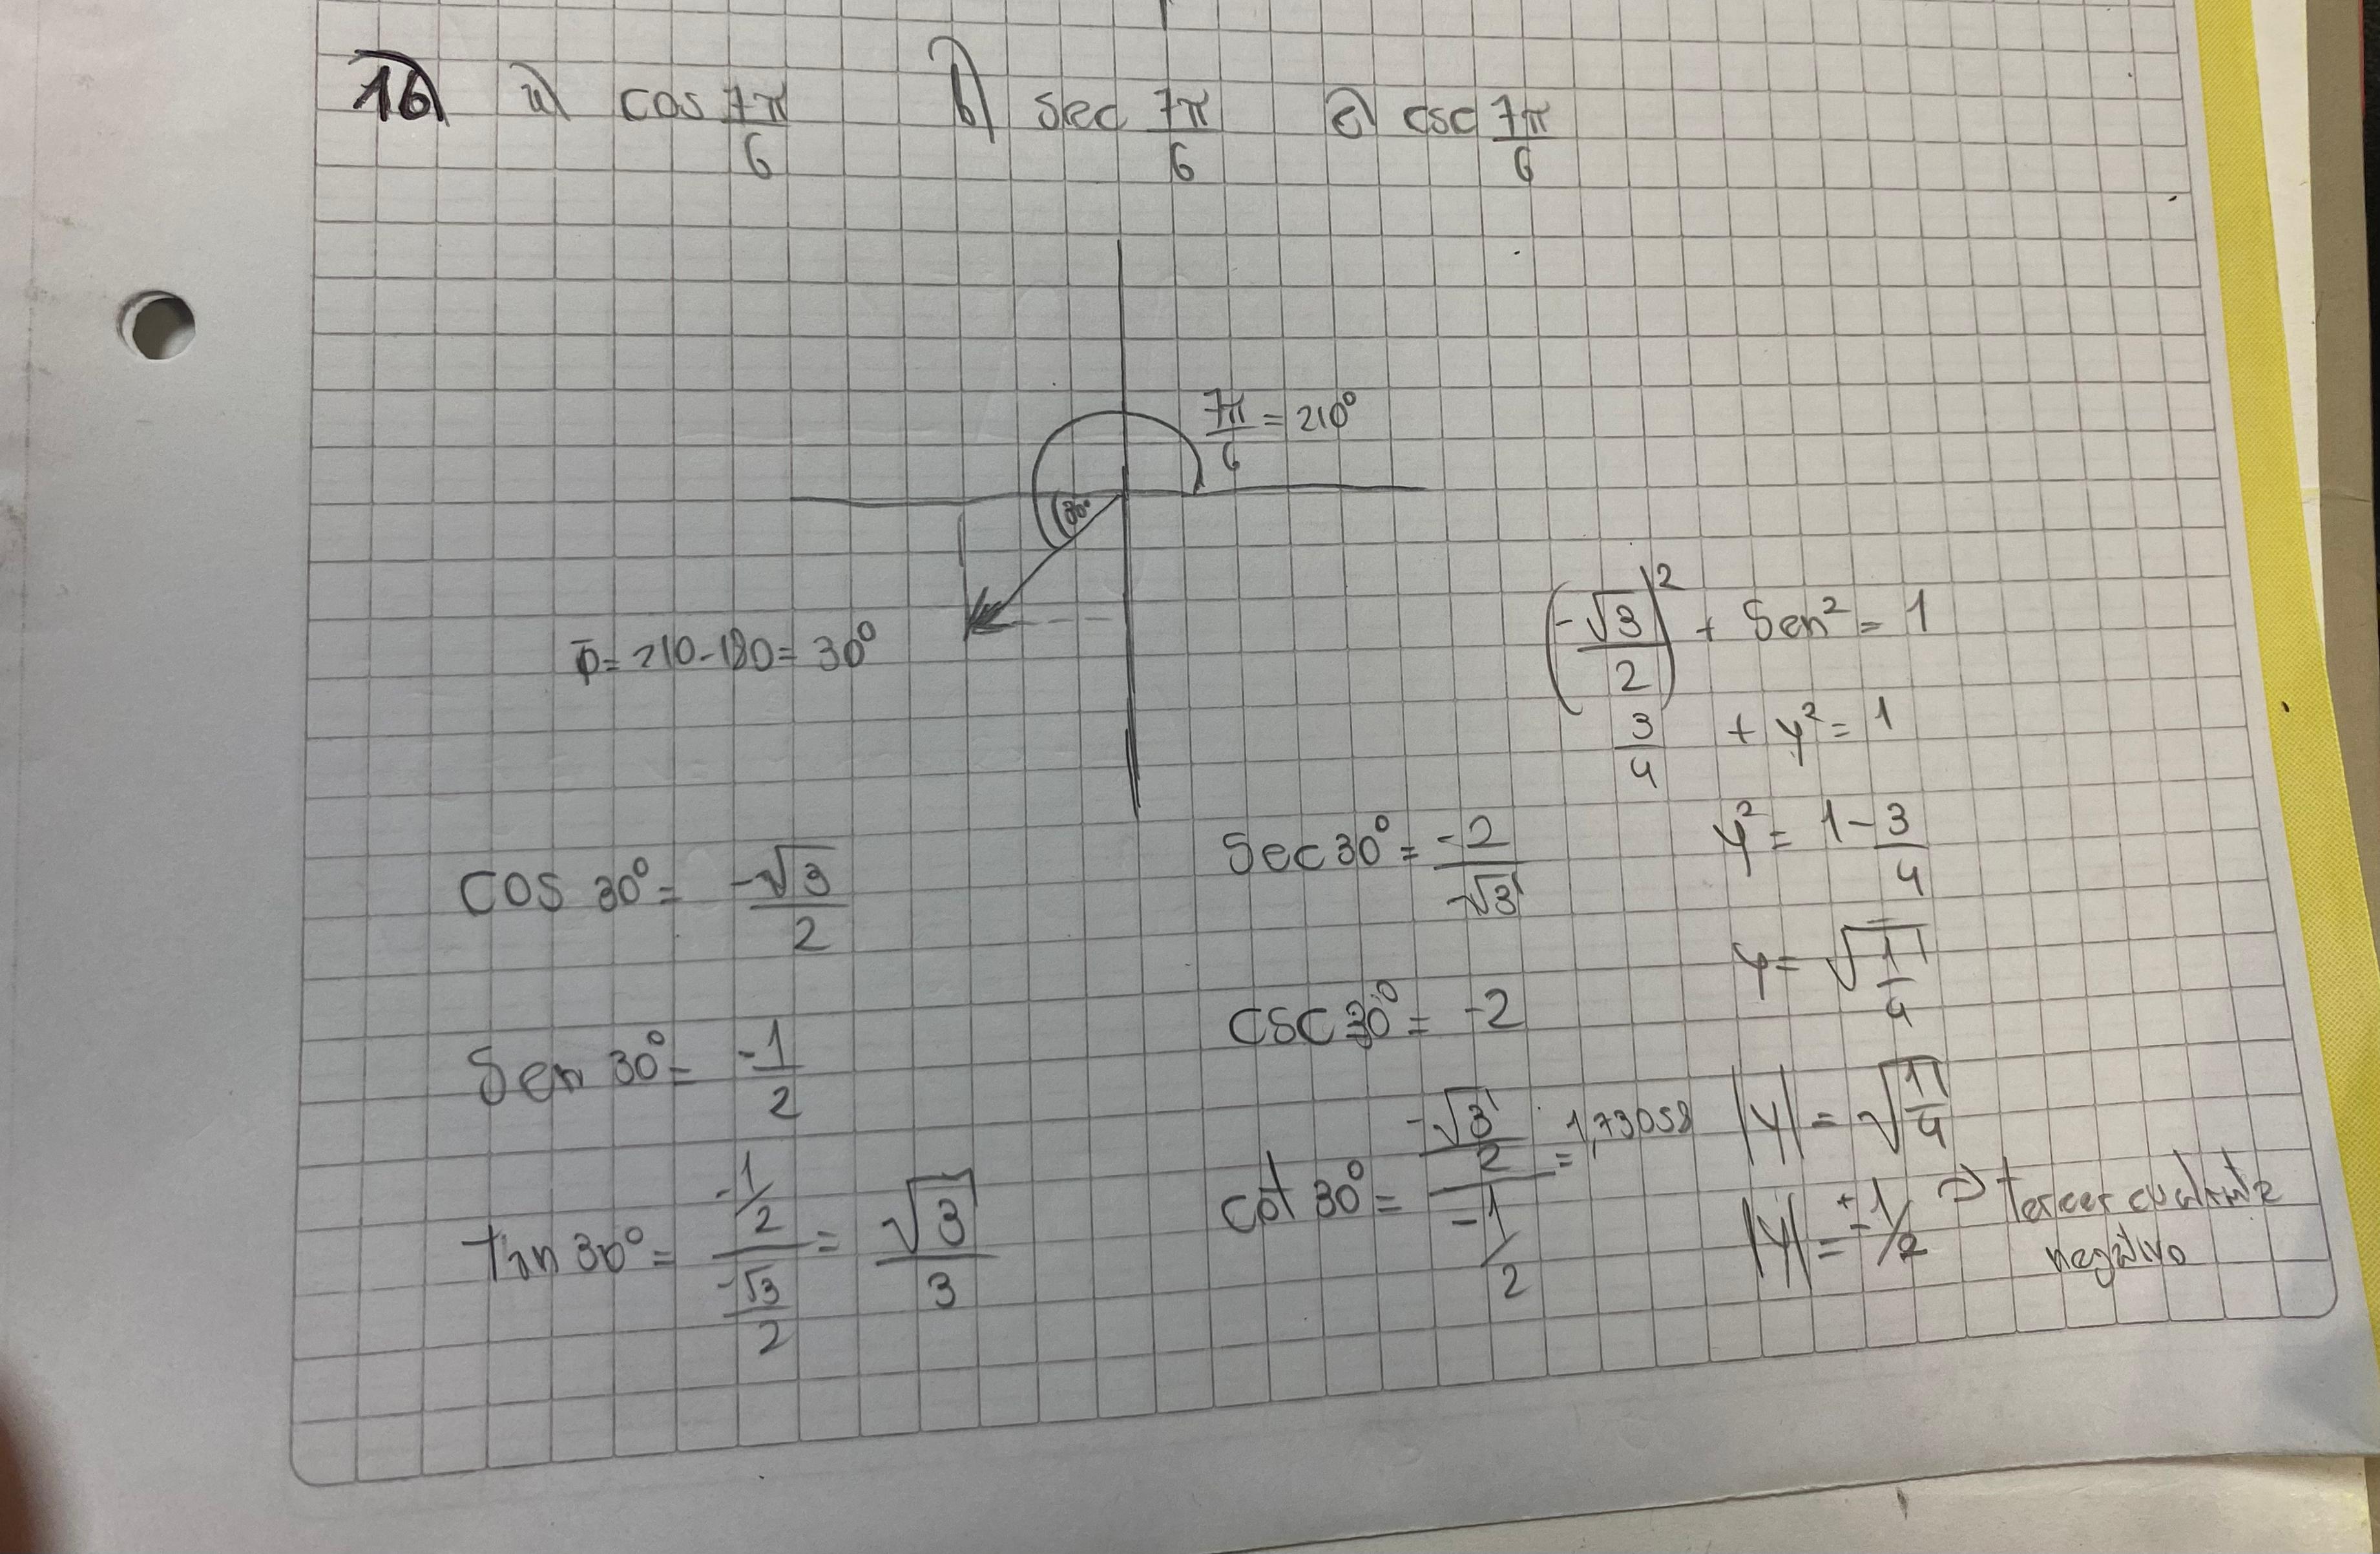 16) a) cos 7π/6 b) sec 7π/6 c) csc 7π/6
7π/6 = 210°
30°
φ = 210-180 = 30°
(-√3/2)² + Sen² = 1
3/4 + y² = 1
y² = 1 - 3/4
y = √1/4
|y| = √1/4
|y| = ±1/2 => tercer cuadrante
negativo
cos 30° = -√3/2
Sen 30° = -1/2
tan 30° = (-1/2)/(-√3/2) = √3/3
Sec 30° = -2/√3
csc 30° = -2
cot 30° = (-√3/2)/(-1/2) = 1,73058